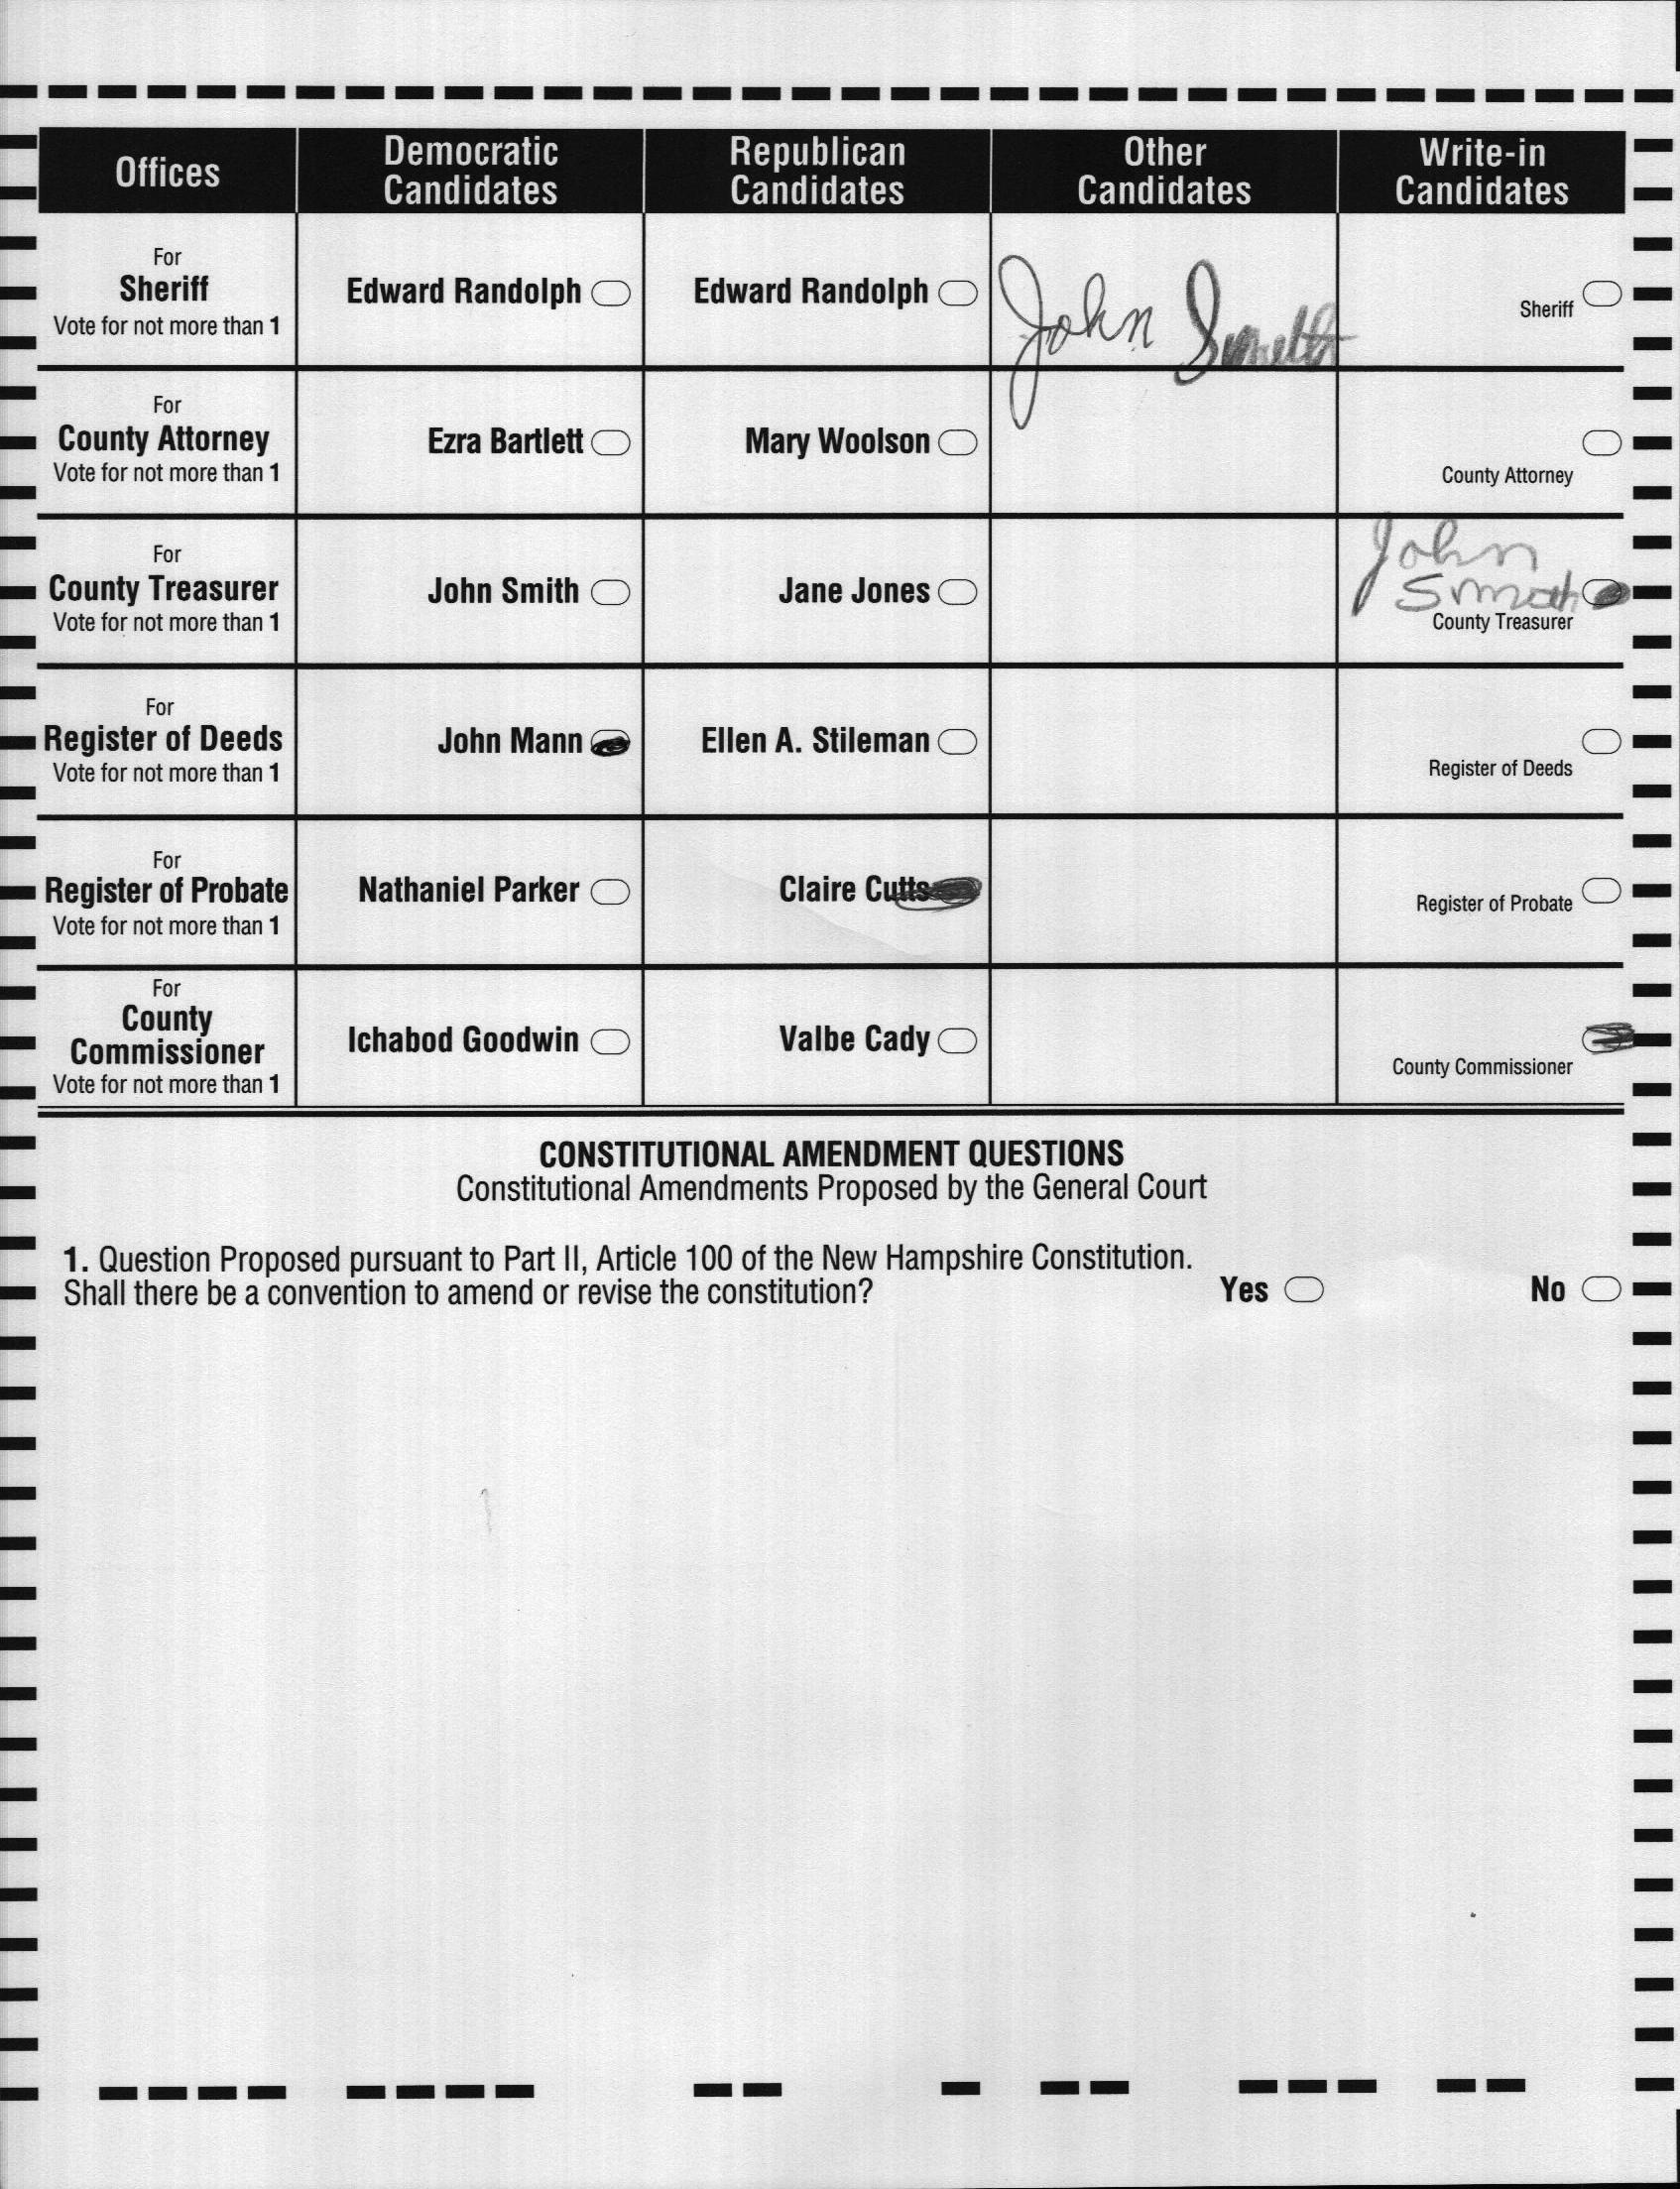 Offices
Democratic Candidates
Republican Candidates
Other Candidates
Write-in Candidates
For
Sheriff
Vote for not more than 1
Edward Randolph
Edward Randolph
John Smith
Sheriff
For
County Attorney
Vote for not more than 1
Ezra Bartlett
Mary Woolson
County Attorney
For
County Treasurer
Vote for not more than 1
John Smith
Jane Jones
John
Smith
County Treasurer
For
Register of Deeds
Vote for not more than 1
John Mann
Ellen A. Stileman
Register of Deeds
For
Register of Probate
Vote for not more than 1
Nathaniel Parker
Claire Cutts
Register of Probate
For
County
Commissioner
Vote for not more than 1
Ichabod Goodwin
Valbe Cady
County Commissioner
CONSTITUTIONAL AMENDMENT QUESTIONS
Constitutional Amendments Proposed by the General Court
1. Question Proposed pursuant to Part II, Article 100 of the New Hampshire Constitution.
Shall there be a convention to amend or revise the constitution?
Yes
No